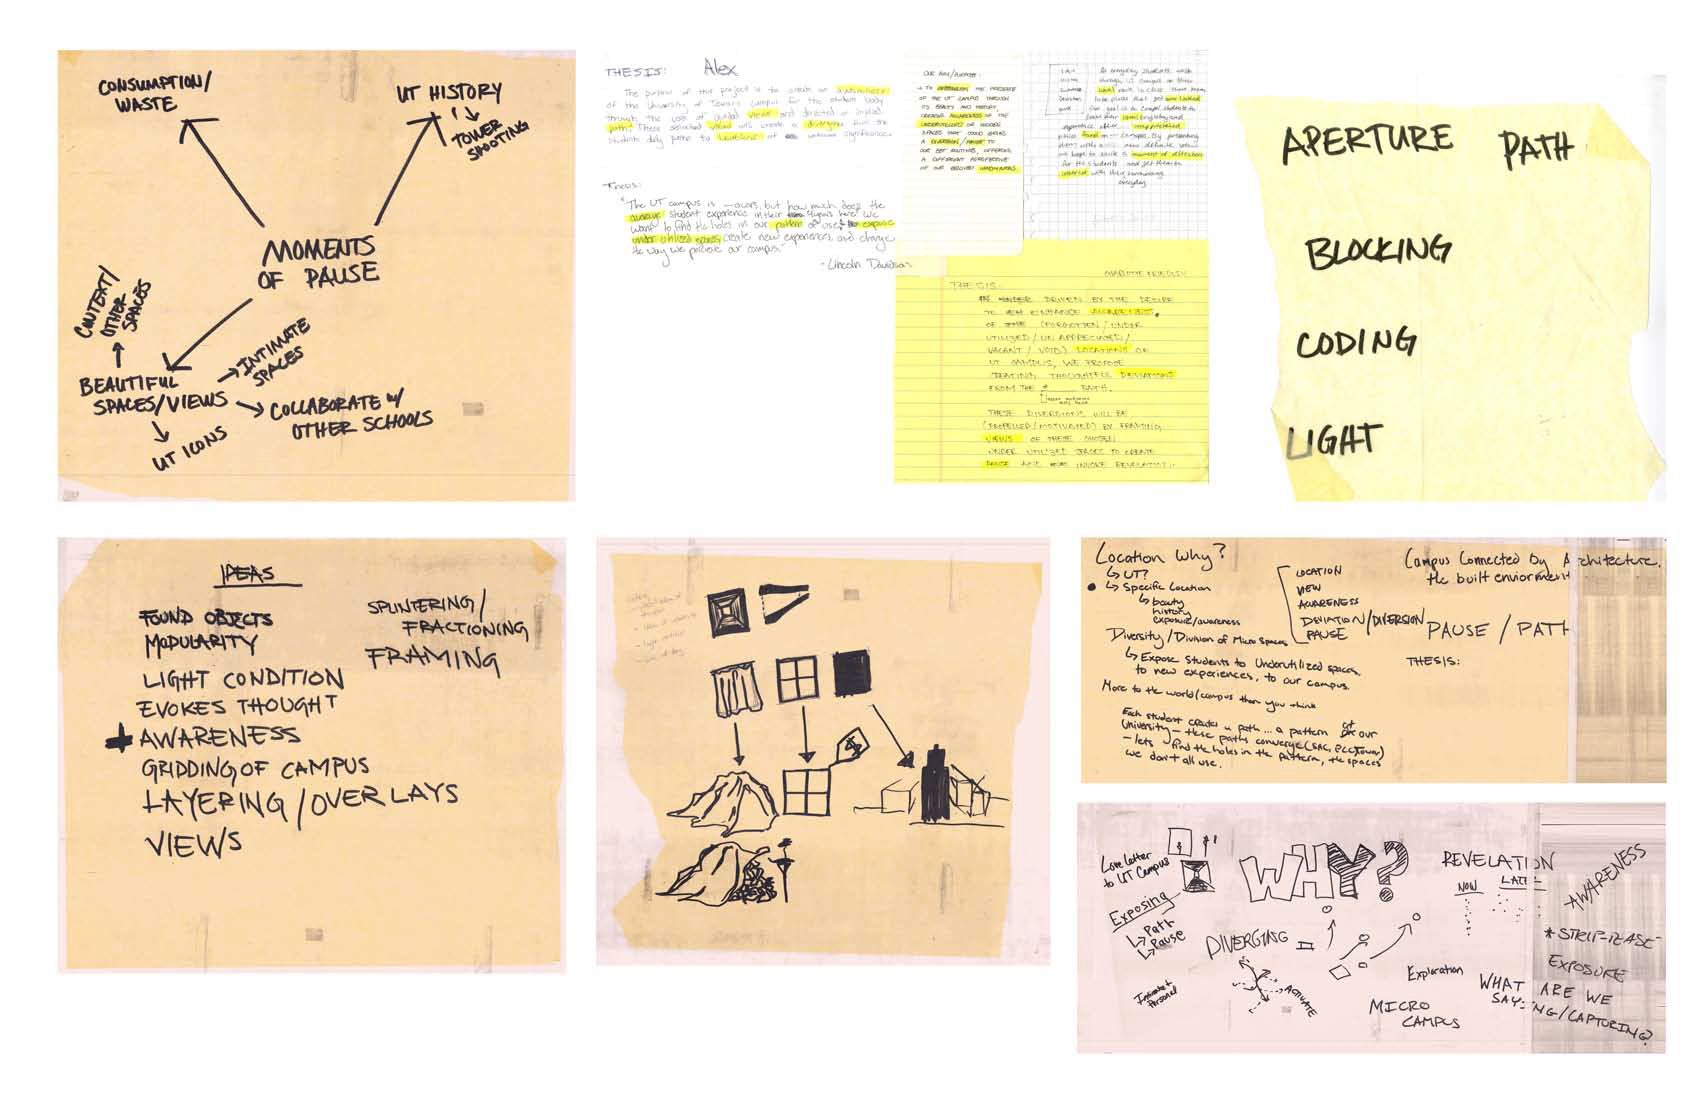 CONSUMPTION/
WASTE
UT HISTORY
TOWER
SHOOTING
MOMENTS
OF PAUSE
CONTEXT/
OTHER
SPACES
BEAUTIFUL
SPACES/VIEWS
INTIMATE
SPACES
COLLABORATE W/
OTHER SCHOOLS
UT ICONS
THESIS: Alex
The purpose of this project is to create an awareness
of the University of Texas campus for the student body
through the use of guided views and directed or implied
path. These selected views will create a divergence from the
students daily paths to locations of unknown significance.
Thesis:
"The UT campus is acres, but how much does the
average student experience in their 4 years here. We
want to find the holes in our pattern of use, expose
under utilized spaces, create new experiences and change
the way we perceive our campus."
- Lincoln Davidson
OUR AIM/PURPOSE:
THE PRESENCE
OF THE UT CAMPUS THROUGH
ITS BEAUTY AND HISTORY,
CREATING AWARENESS OF THE
UNDERUTILIZED OR HIDDEN
SPACES THAT COULD
A DIVERSION/PAUSE TO
OUR SET ROUTINES, OFFERING
A DIFFERENT PERSPECTIVE
OF OUR BELOVED
As everyday students walk
through campus
to class
places that get over looked
Our goal is to compel students to
on campus. By presenting
them with new
we hope to evoke a moment of reflection
for the students and get them to
with their
everyday
CHARLOTTE
THESIS:
DRIVEN BY THE DESIRE
TO ENHANCE AWARENESS
OF THE (FORGOTTEN/UNDER
UTILIZED/UNAPPRECIATED/
VACANT/VOID) LOCATIONS ON
UT CAMPUS, WE PROPOSE
CREATING THOUGHTFUL DEVIATIONS
FROM THE PATH.
THESE DIVERSIONS WILL BE
(PROPELLED/MOTIVATED) BY FRAMING
VIEWS OF THESE CHOSEN
UNDER UTILIZED SPACES TO CREATE
PAUSE AND INVOKE REVELATION.
APERTURE PATH
BLOCKING
CODING
LIGHT
IDEAS
FOUND OBJECTS
MODULARITY
LIGHT CONDITION
EVOKES THOUGHT
AWARENESS
GRIDDING OF CAMPUS
LAYERING/OVERLAYS
VIEWS
SPLINTERING/
FRACTIONING
FRAMING
$
Location Why?
UT?
Specific Location
beauty
history
exposure/awareness
Diversity/Division of Micro spaces
Expose Students to Underutilized spaces,
to new experiences, to our campus.
More to the world/campus than you think
Each student creates a path... a pattern at our
University - these paths converge (SAC, PCL, tower)
- lets find the holes in the pattern, the spaces
we don't all use.
LOCATION
VIEW
AWARENESS
DEVIATION/DIVERSION
PAUSE
Campus Connected By Architecture.
the built enviorment
PAUSE / PATH
THESIS:
Love Letter
to UT Campus
Exposing
Path
Pause
Intimate +
Personal
WHY?
DIVERGING
ACTIVATE
REVELATION
NOW LATE
Exploration
MICRO
CAMPUS
AWARENESS
* STRIP-TEASE
EXPOSURE
WHAT ARE WE
SAYING/CAPTURING?